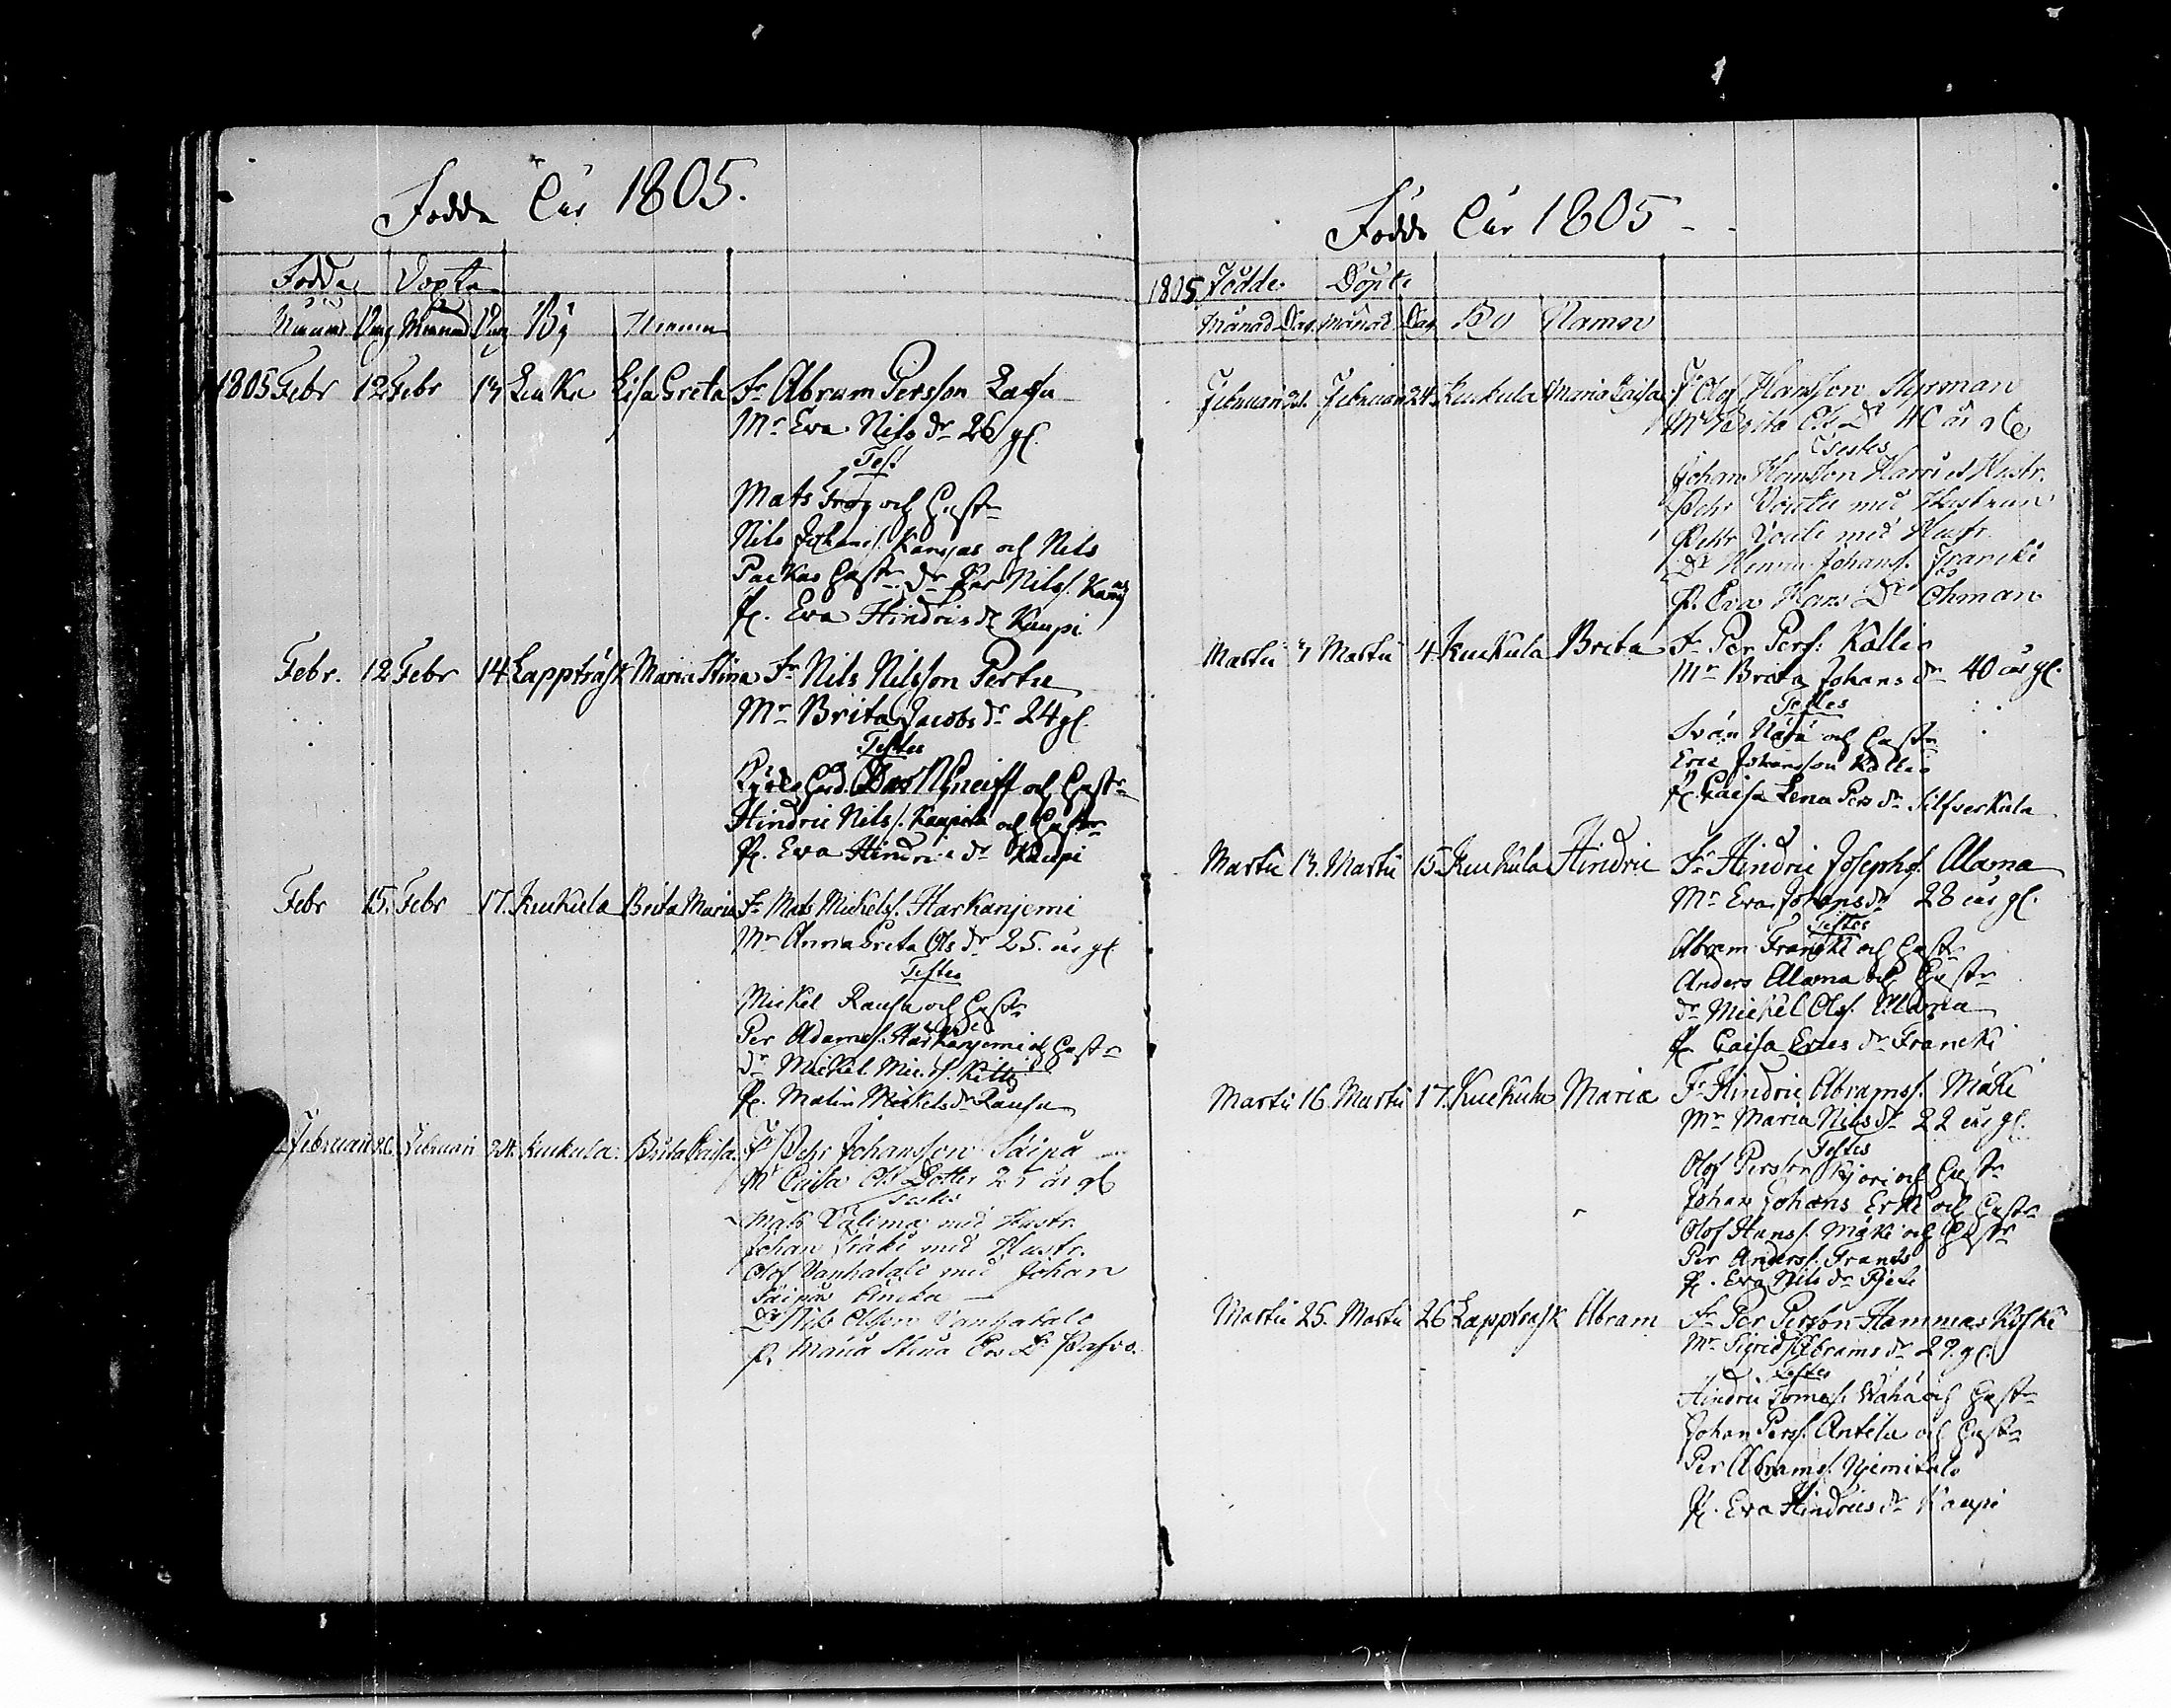 Födde åhr 1805.
Födde Döpte
Månad Dag Månad Dag By Namn
1805 Febr 12 Febr 13 Lisa Greta Fr Abram Persson
Mr Eva Nils dr 26 gl.
Test
Mats Frog och hustr
Nils Johans. Kangas och Nils
Packas hustr dr Per Nilss.
P. Eva Hindrics dr Kaupi
Febr. 12 Febr 14 Lappträsk Maria Stina Fr Nils Nilsson Pertu
Mr Brita Jacobs dr 24 gl.
Testes
och hustr
Hindric Nilss. och hustr
P. Eva Hindrics dr Kaupi
Febr 15. Febr 17. Kuckula Brita Maria Fr Mats Mickelss. Harkanjemi
Mr Anna Greta Ols dr 25. år gl
Testes
Mickel Rausa och hustr
Per Adamss. Harkanjemi och hustr
dr Mickel Mic. s.
P. Malin Mickels dr Rausa
Februari Februari 24. Kuckula. Brita Caisa. Fr Pehr Johansson Säipä
Mr Caisa Ols Dotter 25 år gl
Testes
Mats Välima med Hustr.
Johan med Hustr.
Olof Vanhatalo med Johan
Säipäs Encka
Dr Nils Olsson Vanhatalo
P. Maria Stina Dr
Födde åhr 1805
1805 Födde Döpte
Månad Dag Månad Dag By Namn
Februari 21. Februari 24. Kuckula Maria Caisa Fr Olof Hansson Styrman
Mr Brita Ols Dr 40 år gl
Testes
Johan Hansson Harri et Hustr.
Pehr med Hustrun
Petter med Hustr.
Dr Johans. Francki
P. Eva Hans Dr Öhman
Martii 3 Martii 4 Kuckula Brita Fr Per Perss: Kallio
Mr Brita Johans dr 40 år gl.
Testes
Svän och hustr
Eric Johansson Kallio
P. Caisa Lena Pers dr Silfverkula
Martii 13. Martii 15. Kuckula Hindric Fr Hindric Josephs. Alama
Mr Eva Johans dr 28 år gl.
Testes
Abram Francki och hustr
Anders Alama och hustr
dr Mickel Ols. Alama
P. Caisa Erics dr Francki
Martii 16. Martii 17. Kuckula Maria Fr Hindric Abramss. Mäki
Mr Maria Nils dr 22 år gl.
Testes
Olof Persson Kyöri och hustr
Johan Johans Erki och hustr
Olof Hanss. Mäki och hustr
Per Anderss. Francki
P. Eva Nils dr
Martii 25. Martii 26 Lappträsk Abram Fr Per Persson Hammaskoski
Mr Sigrid Abrams dr 29. gl.
Testes
Hindric Tomass. och hustr
Johan Perss. Antila och hustr
Per Abrams. Njemitalo
P. Eva Hindrics dr Kaupi